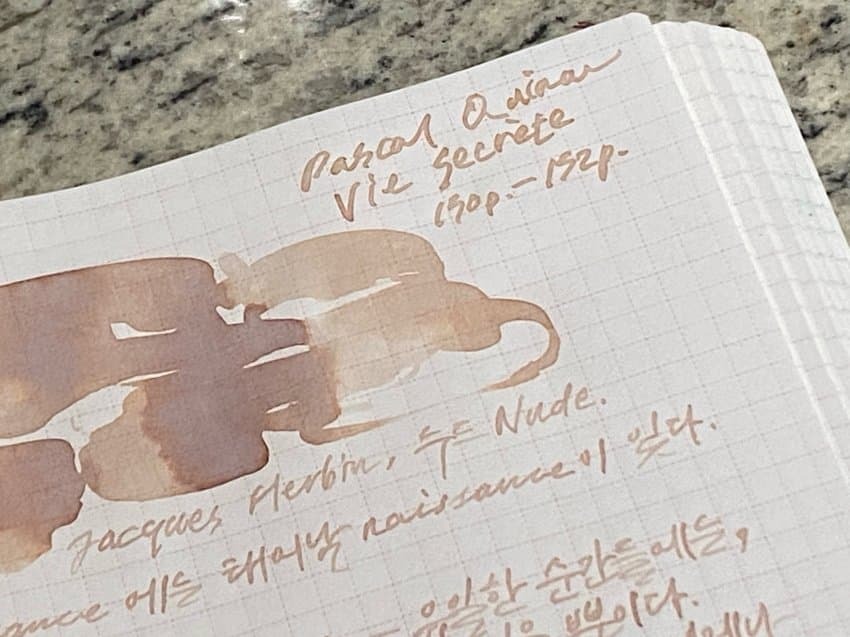 Pascal Quinar
Vie secrète
190p.-192p.
Jacques Herbin, 누드 Nude.
에는 태어남 naissance이 있다.
유일한 순간들에는,
뿐이다.